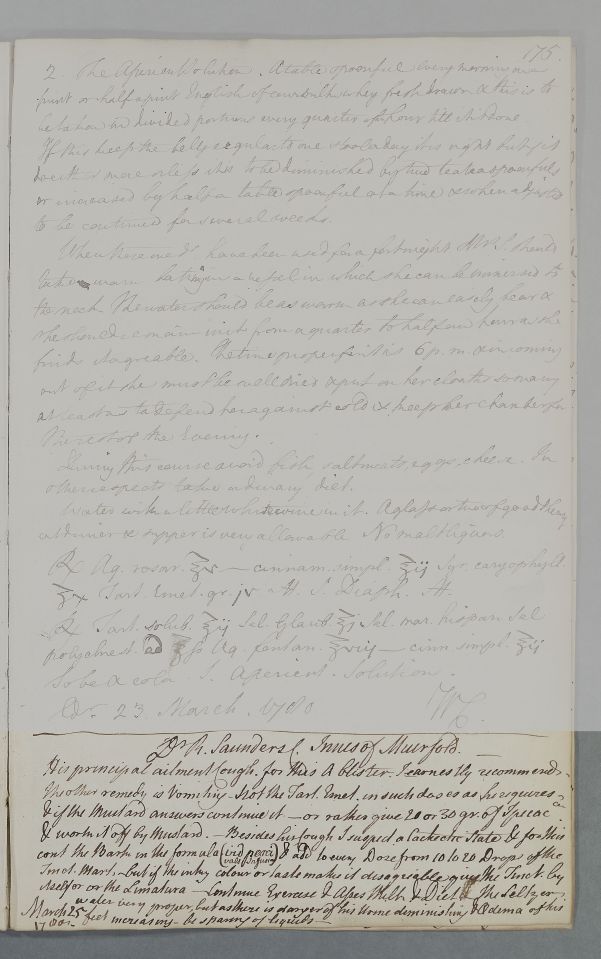 175.
2. The Aperient Solution. A table spoonful every morning in a
pint or half a pint English of cow milk whey fresh drawn & this is to
be taken in divided portions every quarter of hour till it is done
If this keep the belly regular to one stool a day it is right but if it
doeth more or less it is to be diminished by two tea spoonfuls
or increased by half a table spoonful at a time & when adjusted
to be continued for several weeks.
When these med's have been used for a fortnight Mrs S. should
take a warm bathing in a vessel in which she can be immersed to
the neck. The water should be as warm as she can easily bear &
she should remain in it from a quarter to half an hour as she
finds it agreeable. The time proper for it is 6 p.m. & in coming
out of it she must be well dried & put on her cloaths so many
at least as to defend her against cold & keep her chamber for
the rest of the Evening.
During this course avoid fish, salt meats, eggs, cheese. In
other respects take ordinary diet.
Water with a little white wine in it. A glass or two of good
at dinner & supper is very allowable No malt liquors.
℞ Aq. rosar. ℥v — cinnam. simpl. ℥ij Syr. caryophyll.
℥x Tart. Emet. gr. iv M. S. Diaph. M.
℞ Tart. solub. ℥ij Sal. Glaub. ℥j Sal. mar. hispan. Sal
polychrest. aa ℥ss Aq. fontan. ℥viij — cinn simpl. ℥ij
Solve & cola. S. Aperient. Solution.
Edr. 23 March. 1780 WC
Dr R. Saunders f. Innes of Muirfold.
His principal ailment Cough. for this A Blister. I earnestly recommend
The other remedy is Vomiting. Not the Tart. Emet. in such doses as he requires
& if the Mustard answers continue it — or rather give 20 or 30 gr. of Ipecac
& work it off by Mustard. — Besides his Cough I suspect a Cachectic State & for this
cont the Bark in the formula & add to every Dose from 10 to 20 Drops of the
Tinct. Mart. — but if the inky colour or taste makes it disagreable give the Tinct. by
itself or the Limatura — Continue Exercise & Asses Milk & Diet. The Seltzer
water very proper, but as there is danger of his Urine diminishing & Œdema of his
March 25 feet increasing — be sparing of liquids —
1780.